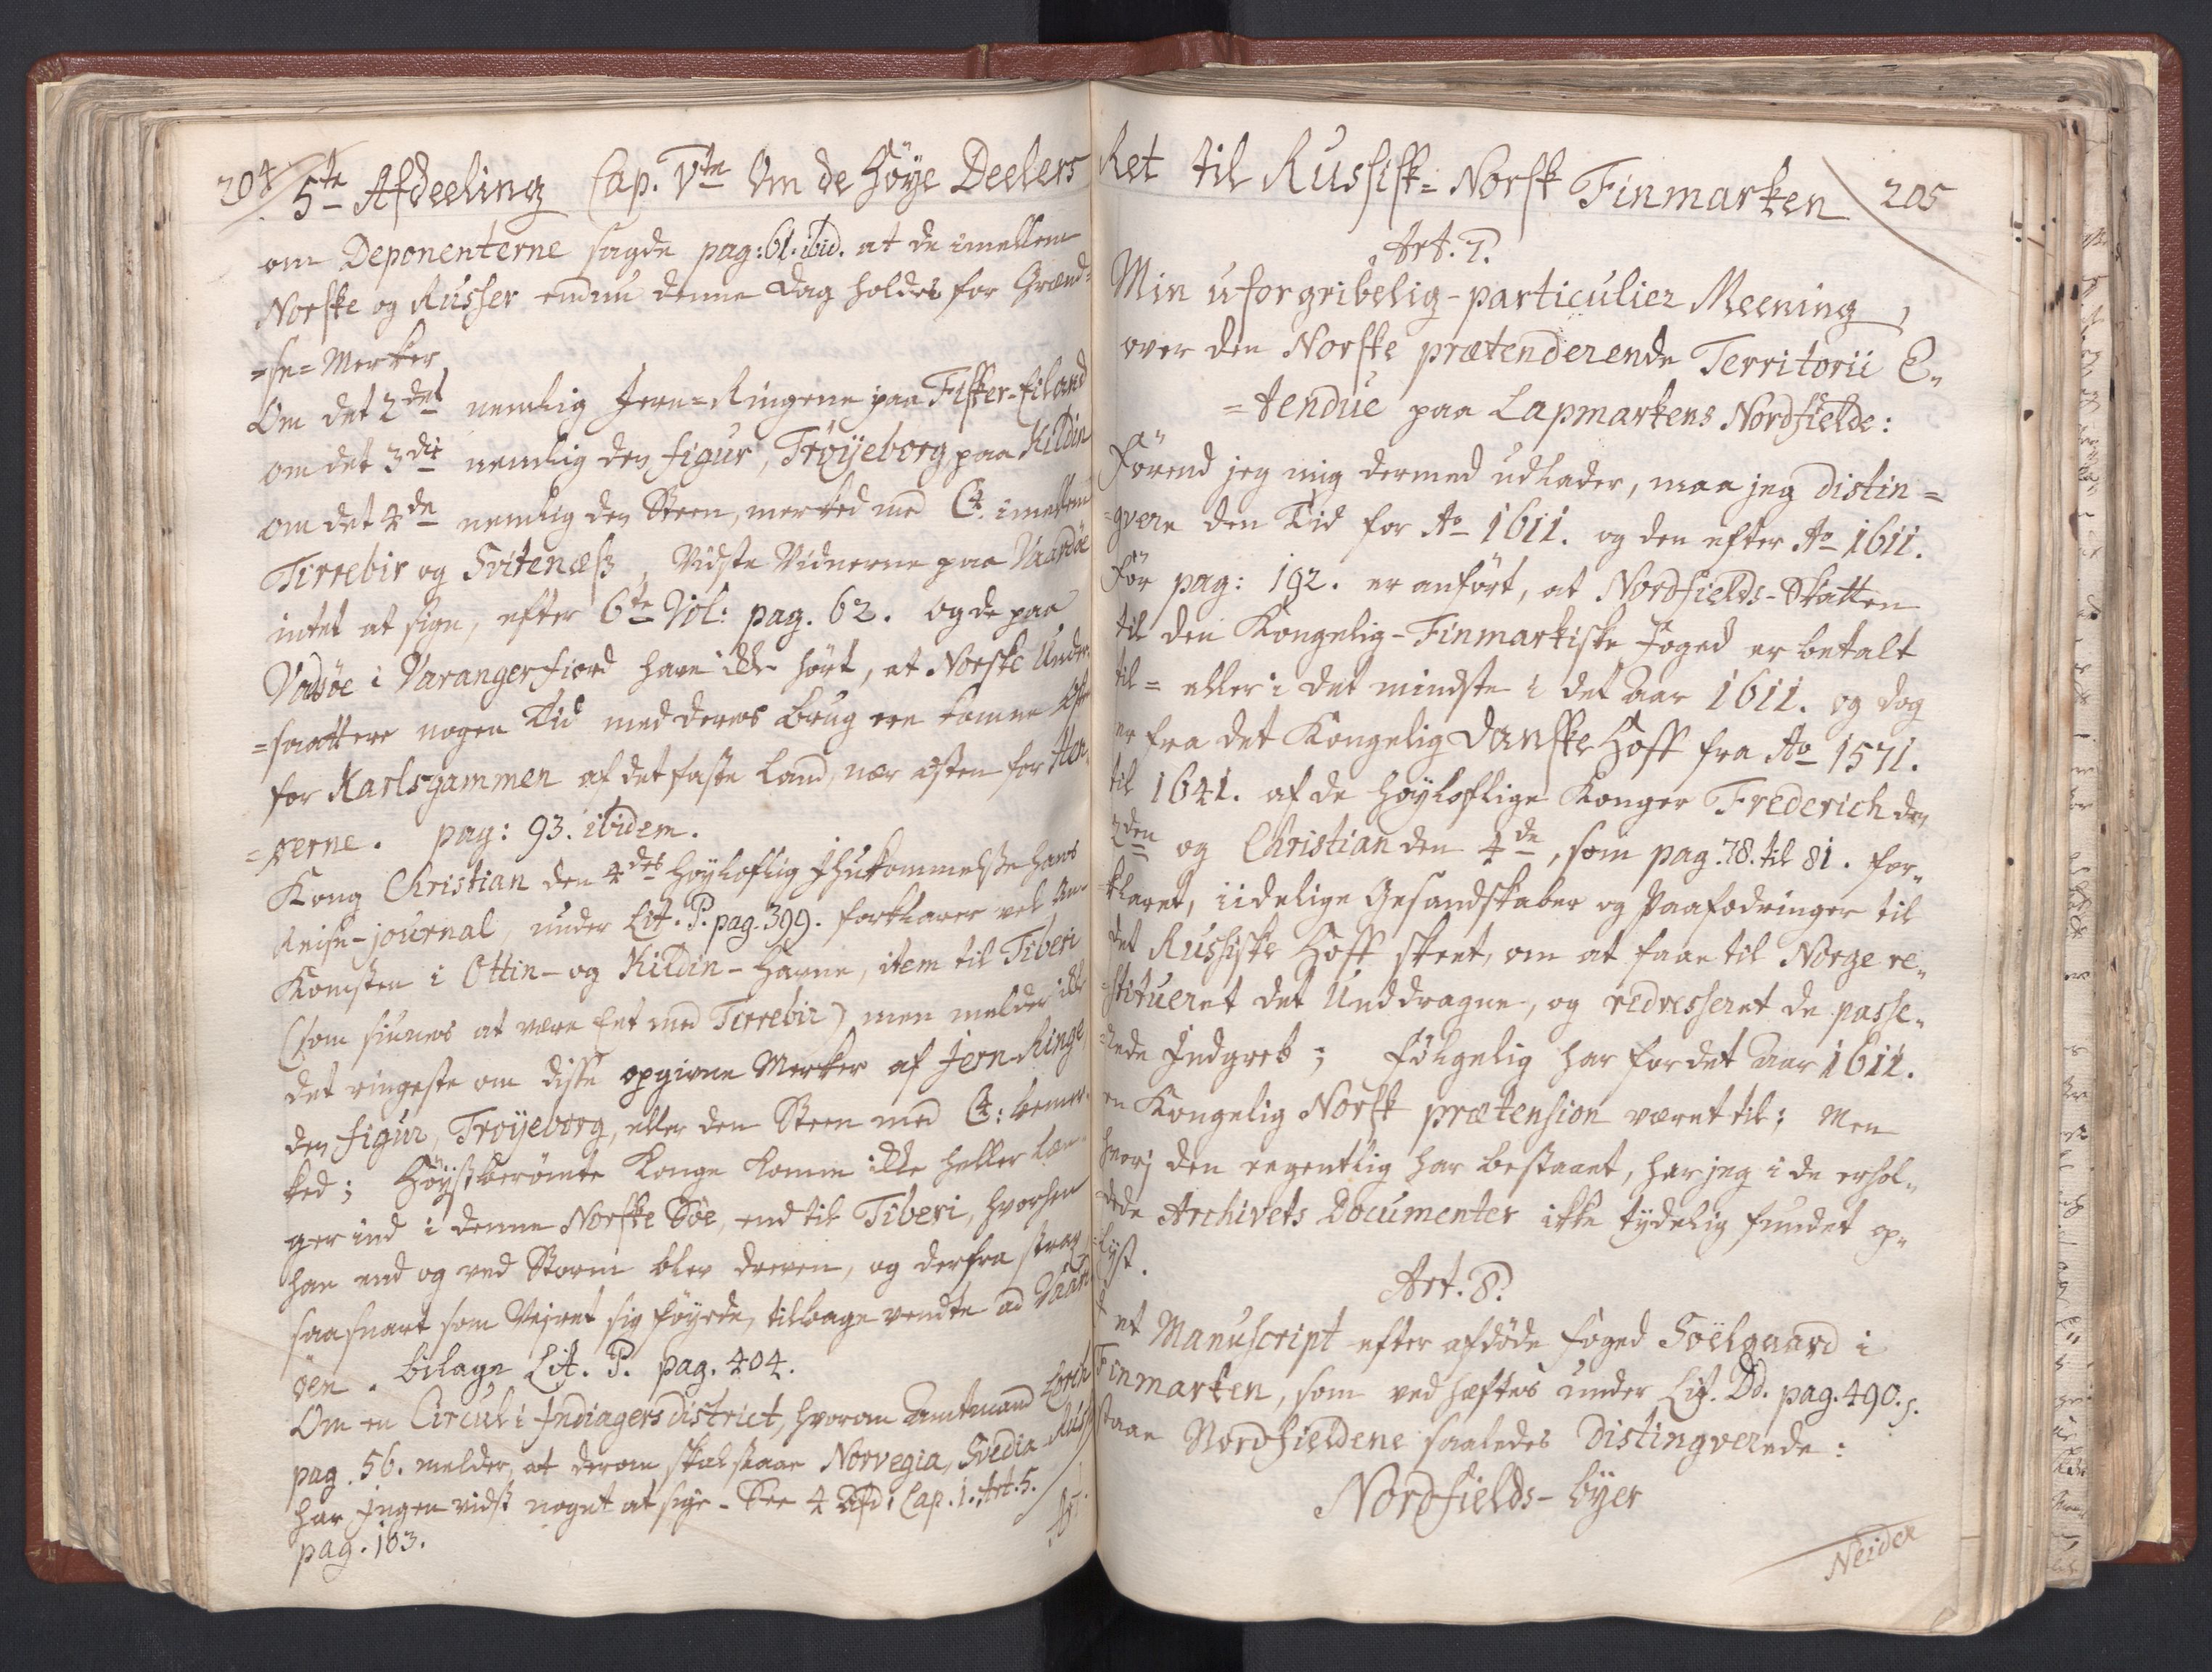 204 5te Afdeeling Cap. Vte Om de Höye Deelers
om Deponenterne sagde pag: 61. ibid. at de imellem
Norske og Russer endnu denne Dag holdes for Grænd=
=se=Merker
Om det 2det nemlig Jern=Ringene paa Fisker-Eiland
om det 3die nemlig den figur, Tröÿeborg, paa Kildin
om det 4de nemlig den Steen, merked med C4. imellem
Tirrebir og Svitenæss, Vidste Vidnerne paa Vaardöe
intet at sige, efter 6te Vol: pag. 62. og de paa
Vadsöe i Varangerfiord have ikke hört, at Norske Under=
=saattere nogen Tid med deres brug ere komne
for Karlsgammen af det faste Land, nær østen for
=øerne. pag: 93. ibidem.
Kong Christian den 4des höyloflig Ihukommelse hans
Reise-journal, under Lit. P. pag. 399. forklarer vel An=
Komsten i Ottin- og Kildin-Havne, item til Tiberi
(som siunes at være Eet med Tirrebir) men melder ikke
det ringeste om disse opgivne Merker af Jern-Ringe
den figur, Tröÿeborg, eller den Steen med C4: bemer=
ked; Höÿstberömte Konge komme ikke heller læn=
ger ind i denne Norske Söe, end til Tiberi, hvorhen
han end og ved Storm blev dreven, og derfra strax
saasnart som Vejret sig föyede, tilbage vendte ad Vaard
öen. bilage Lit. P. pag. 404.
Om en Circul i Indiagers district, hvorom Amtmand Lorch
pag. 56. melder, at derom skal staae Norvegia, Svedia
har Ingen vidst noget at sige. See 4 Afd: Cap. 1. Art. 5.
pag. 163.
Ret til Russisk=Norsk Finmarken 205
Art. 7.
Min uforgribelig-particulier Meening,
over den Norske prætenderende Territorii E=
=tendue paa Lapmarkens Nordfielde:
Förend jeg mig dermed udlader, maa jeg distin=
=gvere den Tid for Ao 1611. og den efter Ao 1611.
För pag: 192. er anfört, at Nordfields-Skatten
til den Kongelig-Finmarkiske Foged er betalt
til= eller i det mindste i det Aar 1611. og dog
er fra det Kongelig Danske Hoff fra Ao 1571.
til 1641. af de höyloflige Konger Frederich den
2den og Christian den 4de, som pag. 78. til 81. for=
klaret, iidelige Gesandskaber og Paafodringer til
det Russiske Hoff skeet, om at faae til Norge re=
=stitueret det Unddragne, og redresseret de passe=
=rede Indgreb; fölgelig har for det Aar 1611.
en Kongelig Norsk prætension været til; Men
hvorj den egentlig har bestaaet, har jeg i de erhol=
dede Archivets Documenter ikke tÿdelig fundet op=
=lÿst.
Art. 8.
et Manuscript efter afdöde foged Soëlgaard i
Finmarken, som ved hæftes under Lit. Dd. pag. 490. s.
staae Nordfieldene saaledes Distingverede:
Nordfields-bÿer
Neider